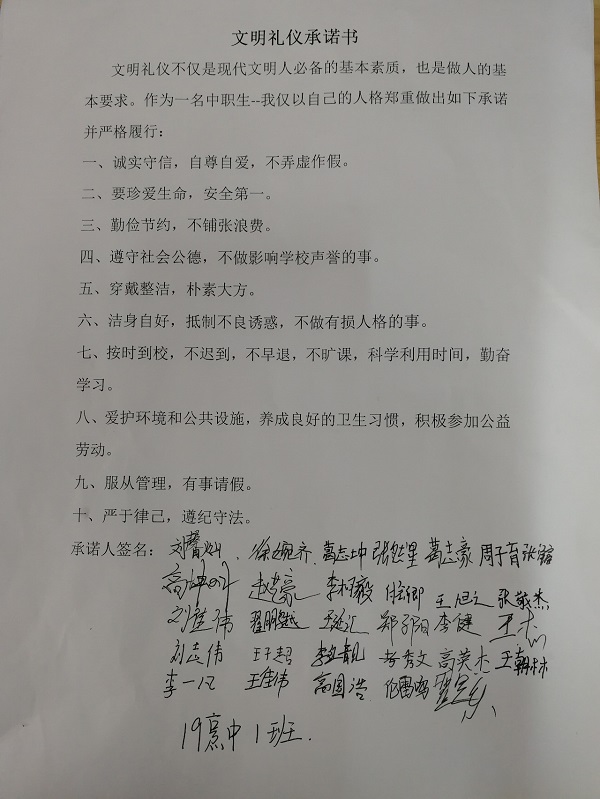 文明礼仪承诺书
文明礼仪不仅是现代文明人必备的基本素质，也是做人的基
本要求。作为一名中职生--我仅以自己的人格郑重做出如下承诺
并严格履行：
一、诚实守信，自尊自爱，不弄虚作假。
二、要珍爱生命，安全第一。
三、勤俭节约，不铺张浪费。
四、遵守社会公德，不做影响学校声誉的事。
五、穿戴整洁，朴素大方。
六、洁身自好，抵制不良诱惑，不做有损人格的事。
七、按时到校，不迟到，不早退，不旷课，科学利用时间，勤奋
学习。
八、爱护环境和公共设施，养成良好的卫生习惯，积极参加公益
劳动。
九、服从管理，有事请假。
十、严于律己，遵纪守法。
承诺人签名： 徐婉齐 葛志坤 葛志豪 周子育
李柯毅 张敬杰
翟鹏越 郑子阳 李健 王杰
刘志伟 王子超 高英杰 王朝林
李一凡 王佳伟 高国浩
19高中1班.